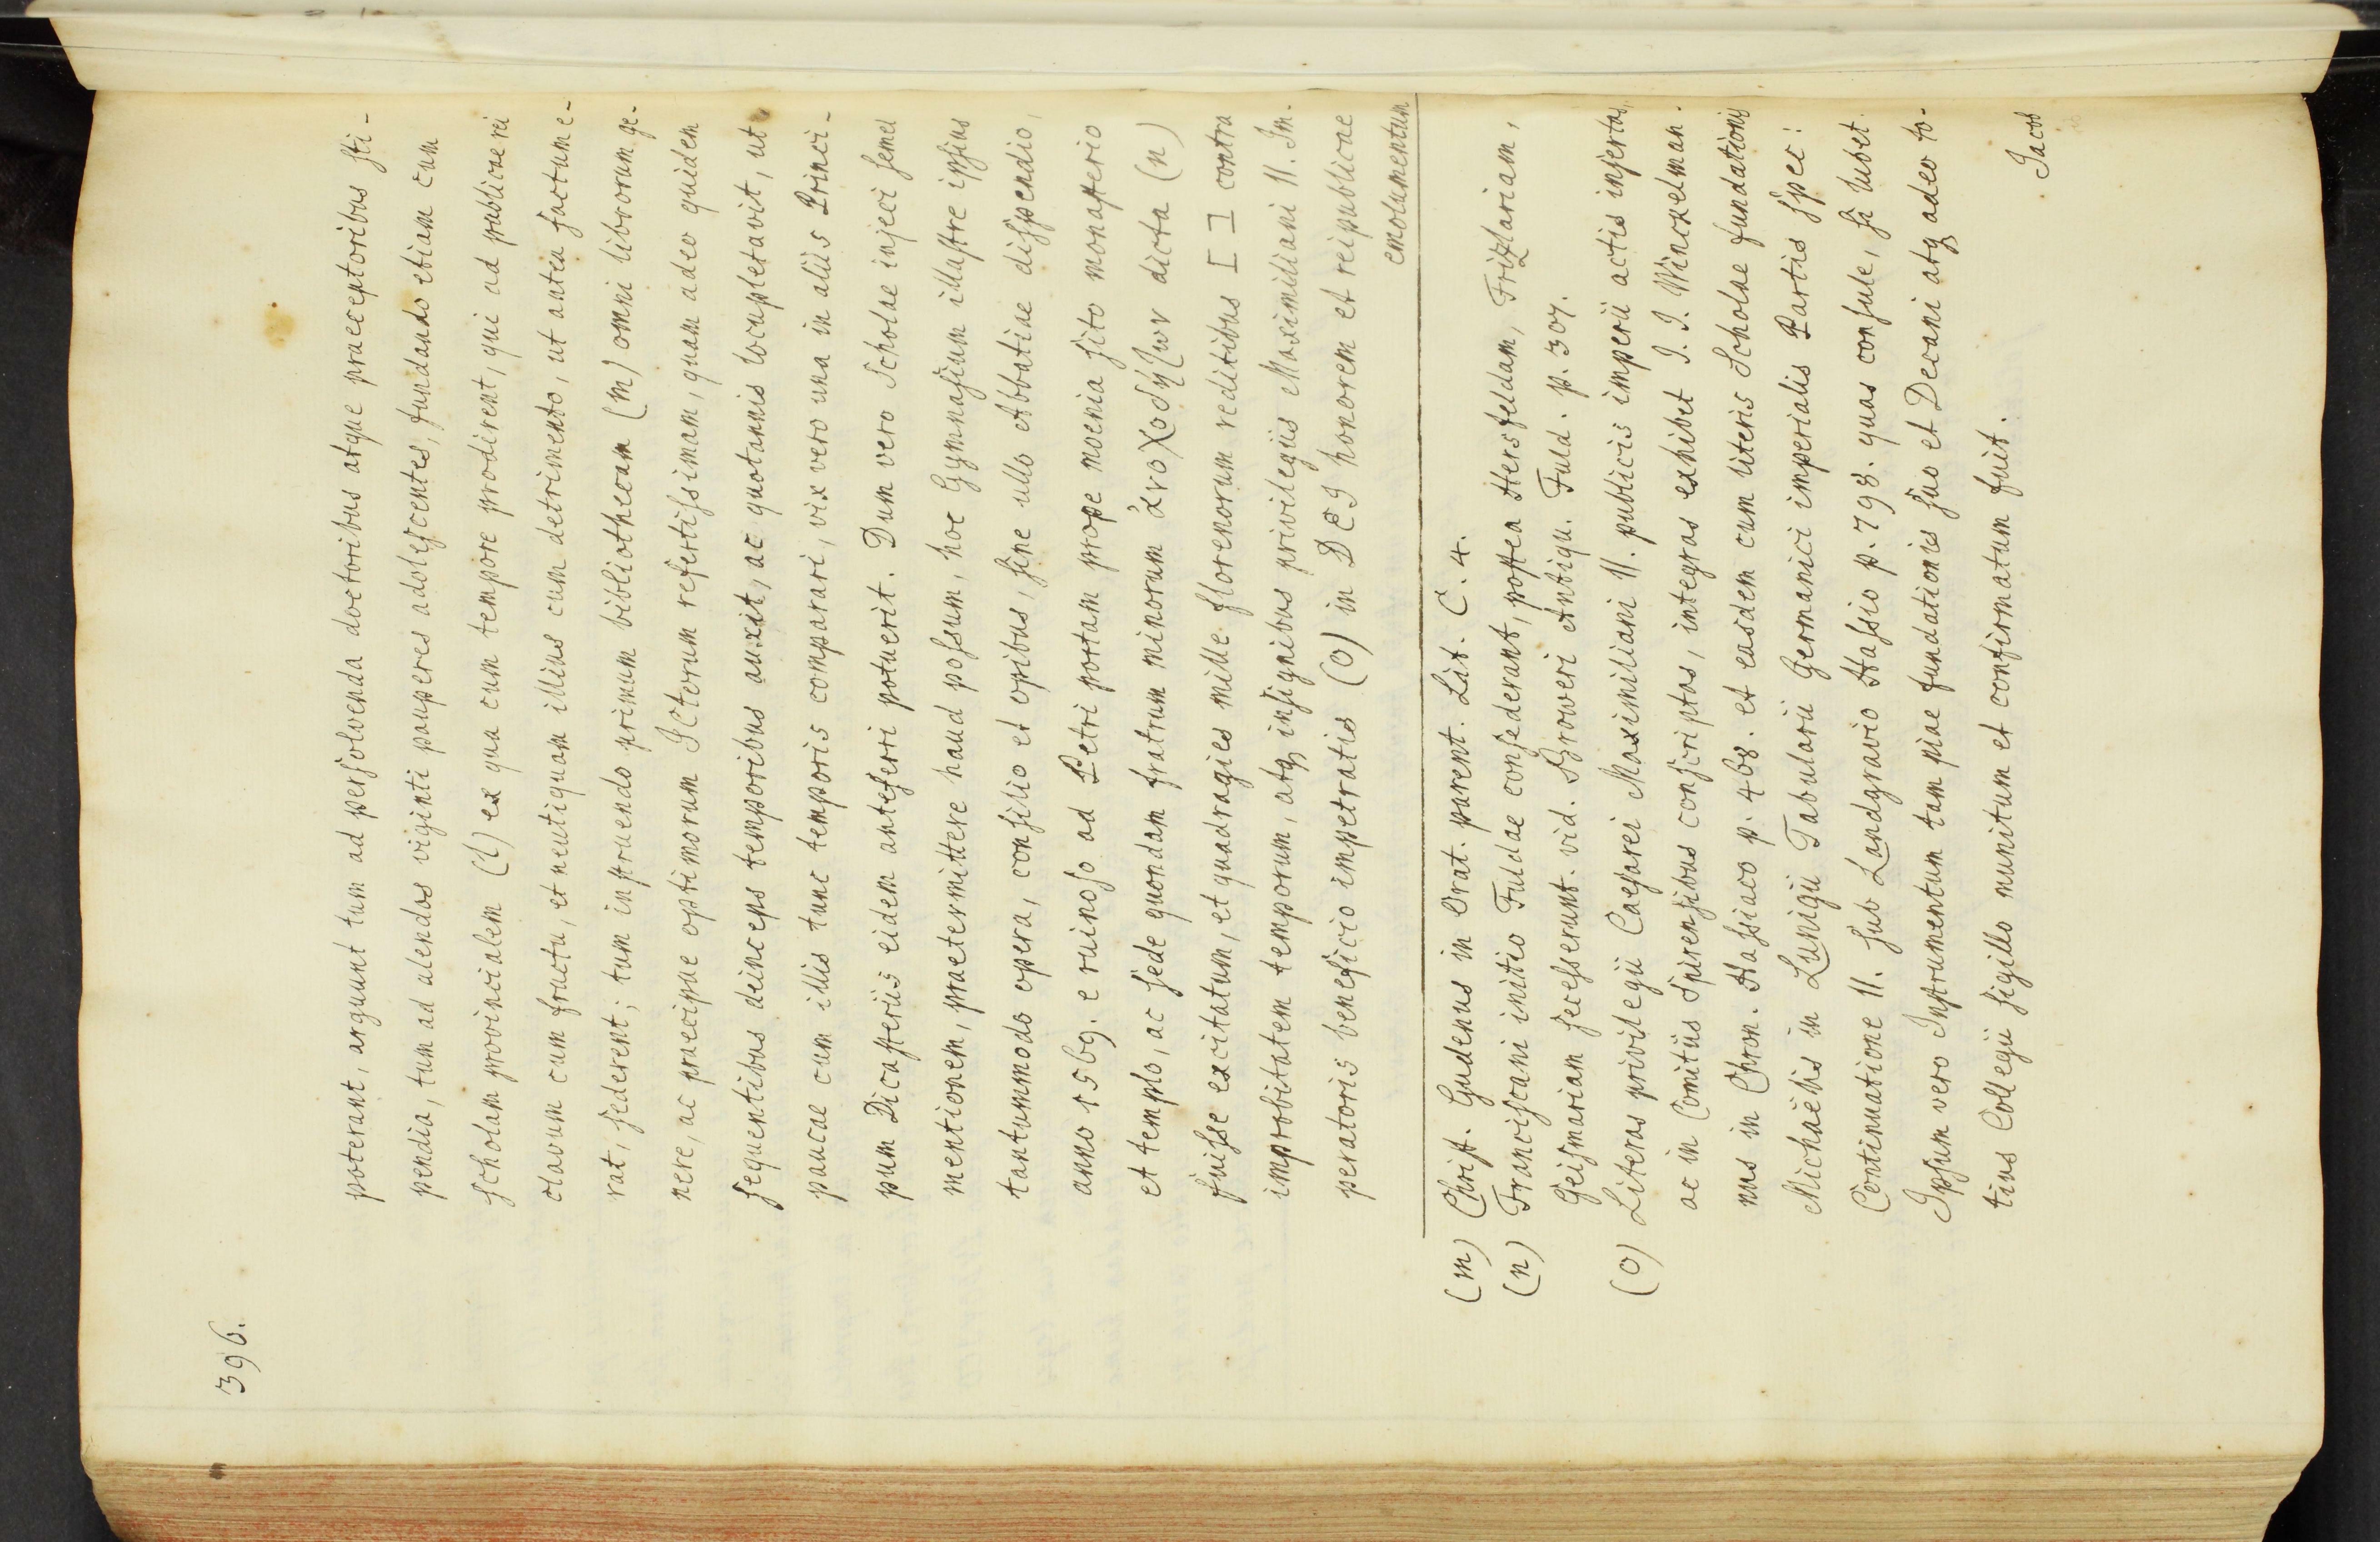 396.
poterant, arguunt tum ad persolvenda doctoribus atque praeceptoribus sti-
pendia, tum ad alendos viginti pauperes adolescentes, fundando etiam cum
scholam provincialem (l) ex qua cum tempore prodirent, qui ad publicae rei
clavum cum fructu, et neutiquam illius cum detrimento, ut antea factume-
rat, sederent; tum instruendo primum bibliothecam (m) omni librorum ge-
nere, ac praecipue optimorum ICtorum refertissimam, quam adeo quidem
sequentibus deinceps temporibus auxit, ac quotannis locupletavit, ut
paucae cum illis tunc temporis comparari, vix vero una in aliis Princi-
pum Dicasteriis eidem anteferri potuerit. Dum vero Scholae injeci semel
mentionem, praetermittere haud possum, hoc Gymnasium illustre ipsius
tantummodo opera, consilio et opibus, sine ullo Abbatiae dispendio,
anno 1569. e ruinoso ad Petri portam prope moenia sito monasterio
et templo, ac sede quondam fratrum minorum ἀνοχοδήλων dicta (n)
fuisse excitatum, et quadragies mille florenorum reditibus [ ] contra
improbitatem temporum, atq; insignibus privilegiis Maximiliani II. Im-
peratoris beneficio impetratis (o) in DEI honorem et reipublicae
emolumentum
(m) Christ. Gudenus in Orat. parent. Lit. C. 4.
(n) Franciscani initio Fuldae consederant, postea Hersfeldam, Frizlariam,
Geismariam secesserunt. vid. Broweri Antiqu. Fuld. p. 307.
(o) Literas privilegii Caesarei Maximiliani II. publicis imperii actis insertas,
ac in Comitiis Spirensibus conscriptas, integras exhibet I. I. Winckelman-
nus in Chron. Hassiaco p. 468. et easdem cum literis Scholae fundationis
Michaëlis in Lunigii Tabularii Germanici imperialis Partis spec:
Continuatione II. sub Landgravio Hassio p. 798. quas consule, si lubet.
Ipsum vero Instrumentum tam piae fundationis suo et Decani atq; adeo to-
tius Collegii sigillo munitum et confirmatum fuit.
Jacob